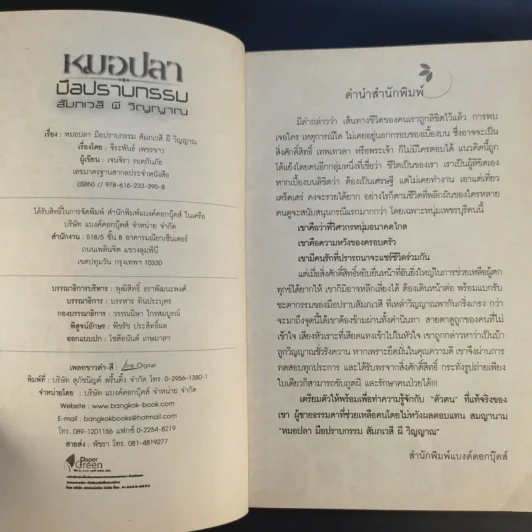 หมอปลา
มือปราบกรรม
สัมภเวสี ผี วิญญาณ
เรื่อง : หมอปลา มือปราบกรรม สัมภเวสี ผี วิญญาณ
เรื่องโดย : จีระพันธ์ เพชรขาว
ผู้เขียน : เจนจิรา รอดกันภัย
เลขมาตรฐานสากลประจำหนังสือ
(ISBN) // 978-616-233-395-8
ได้รับสิทธิ์ในการจัดพิมพ์ สำนักพิมพ์แบงค์ดอกบุ๊คส์ ในเครือ
บริษัท แบงค์ดอกบุ๊คส์ จำหน่าย จำกัด
สำนักงาน : 518/5 ชั้น 8 อาคารมณียาเซ็นเตอร์
ถนนเพลินจิต แขวงลุมพินี
เขตปทุมวัน กรุงเทพฯ 10330
บรรณาธิการบริหาร : พุฒิสิทธิ์
บรรณาธิการ : บรรหาร
กองบรรณาธิการ : วรรณนิษา ไกรสมบูรณ์
พิสูจน์อักษร : พิชรัช ประสิทธิ์ผล
ออกแบบปก : โชติอนันต์ เกษมาลา
เพลทขาวดำ-สี : Digital
พิมพ์ที่ : บริษัท สุภัชนิญค์ พริ้นติ้ง จำกัด โทร. 0-2956-1380-1
จำหน่ายโดย : บริษัท แบงค์ดอกบุ๊คส์ จำหน่าย จำกัด
Website : www.bangkok-book.com
E-mail : bangkokbooks@hotmail.com
โทร. 089-1201156 แฟกซ์ 0-2254-8219
สายส่ง : พัชรา โทร. 081-4819277
Paper Green
คำนำสำนักพิมพ์
มีคำกล่าวว่า เส้นทางชีวิตของคนเราถูกลิขิตไว้แล้ว การพบ
เจอใคร เหตุการณ์ใด ไม่เคยอยู่นอกกรอบของเบื้องบน ซึ่งอาจจะเป็น
สิ่งศักดิ์สิทธิ์ เทพเทวดา หรือพระเจ้า ก็ไม่มีใครตอบได้ แนวคิดนี้ถูก
โต้แย้งโดยคนอีกกลุ่มหนึ่งที่เชื่อว่า ชีวิตเป็นของเรา เราเป็นผู้ลิขิตเอง
หากเบื้องบนลิขิตว่า ต้องเป็นเศรษฐี แต่ไม่เคยทำงาน เอาแต่เที่ยว
เตร็ดเตร่ คงจะรวยได้ยาก อย่างไรก็ตามชีวิตที่พลิกผันของใครหลาย
คนดูจะสนับสนุนกรณีแรกมากกว่า โดยเฉพาะหนุ่มเพชรบุรีคนนี้
เขาคือว่าที่วิศวกรหนุ่มอนาคตไกล
เขาคือความหวังของครอบครัว
เขามีคนรักที่ปรารถนาจะแชร์ชีวิตร่วมกัน
แต่เมื่อสิ่งศักดิ์สิทธิ์หยิบยื่นหน้าที่อันยิ่งใหญ่ในการช่วยเหลือผู้ตก
ทุกข์ได้ยากให้ เขาก็มิอาจหลีกเลี่ยงได้ ต้องเดินหน้าต่อ พร้อมแบกรับ
ชะตากรรมของมือปราบสัมภเวสี ที่เหล่าวิญญาณพากันกริ่งเกรง กว่า
จะมาถึงจุดนี้ได้เขาต้องข้ามผ่านทั้งคำนินทา สายตาดูถูกของคนที่ไม่
เข้าใจ เสียงหัวเราะที่เสียดแทงเข้าไปในหัวใจ เขาถูกกล่าวหาว่าเป็นบ้า
ถูกวิญญาณชั่วรังควาน หากเพราะยึดมั่นในคุณความดี เขาจึงผ่านการ
ทดสอบทุกประการ และได้รับพรจากสิ่งศักดิ์สิทธิ์ กระทั่งรูปถ่ายเพียง
ใบเดียวก็สามารถขับภูตผี และรักษาคนป่วยได้!!!
เตรียมตัวให้พร้อมเพื่อทำความรู้จักกับ "ตัวตน" ที่แท้จริงของ
เขา ผู้ชายธรรมดาที่ช่วยเหลือคนโดยไม่หวังผลตอบแทน สมญานาม
"หมอปลา มือปราบกรรม สัมภเวสี ผี วิญญาณ"
สำนักพิมพ์แบงค์ดอกบุ๊คส์